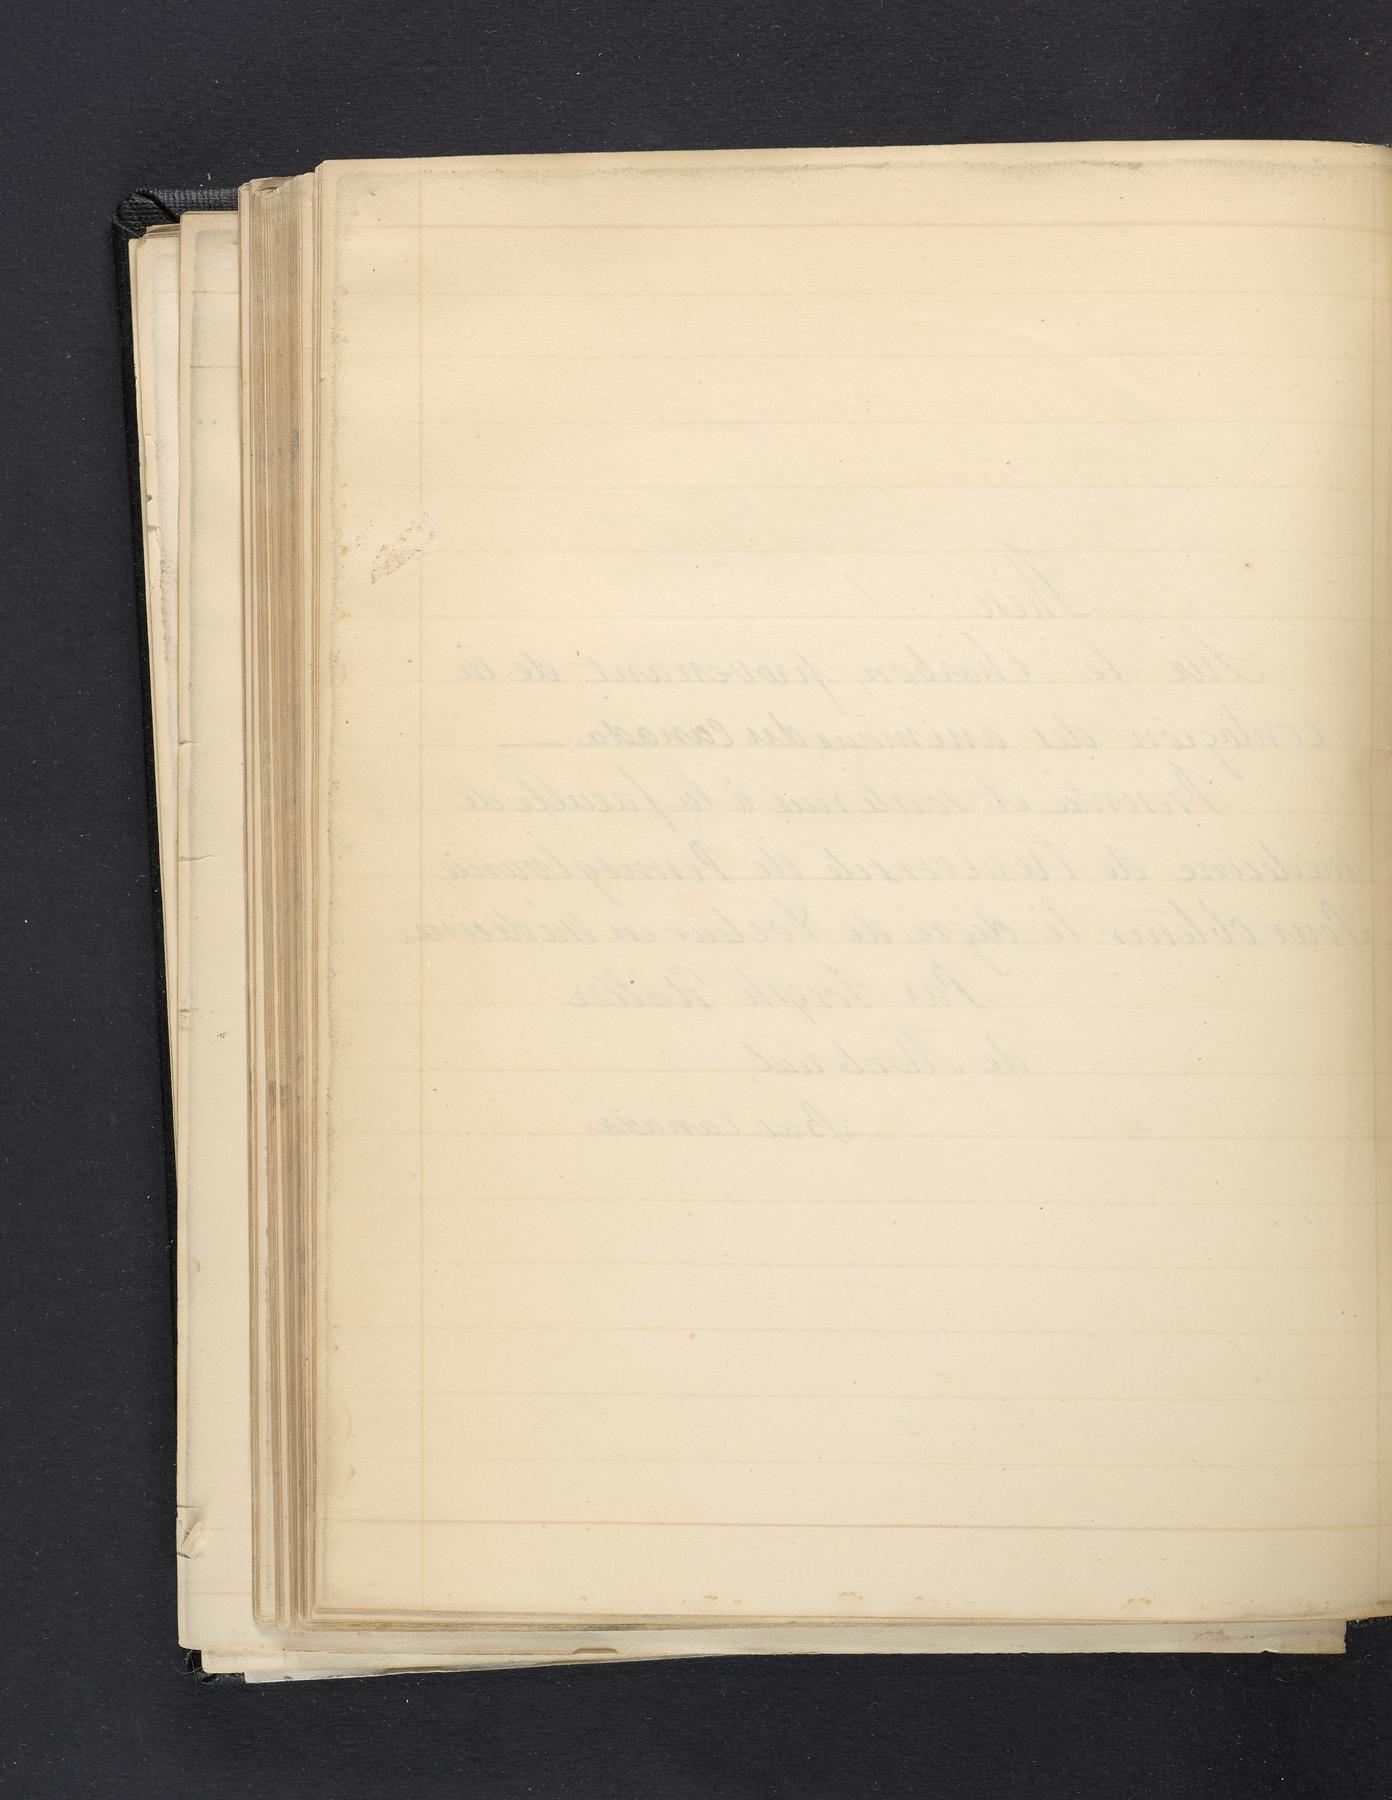 Thèse
Sur le Charbon, provenant de la
contagion des animaux du Canada
Présentée et soutenue à la faculté de
Médecine de l'université de Pennsylvania,
Pour obtenir le degré de Docteur en Médecine.
Par Joseph
de Montreal,
Bas Canada